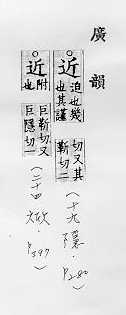 廣韻
近 迫也幾也其謹切又其靳切二
(十九 隱・P280)
近 附也巨靳切又巨隱切一
(二十四 焮・P397)